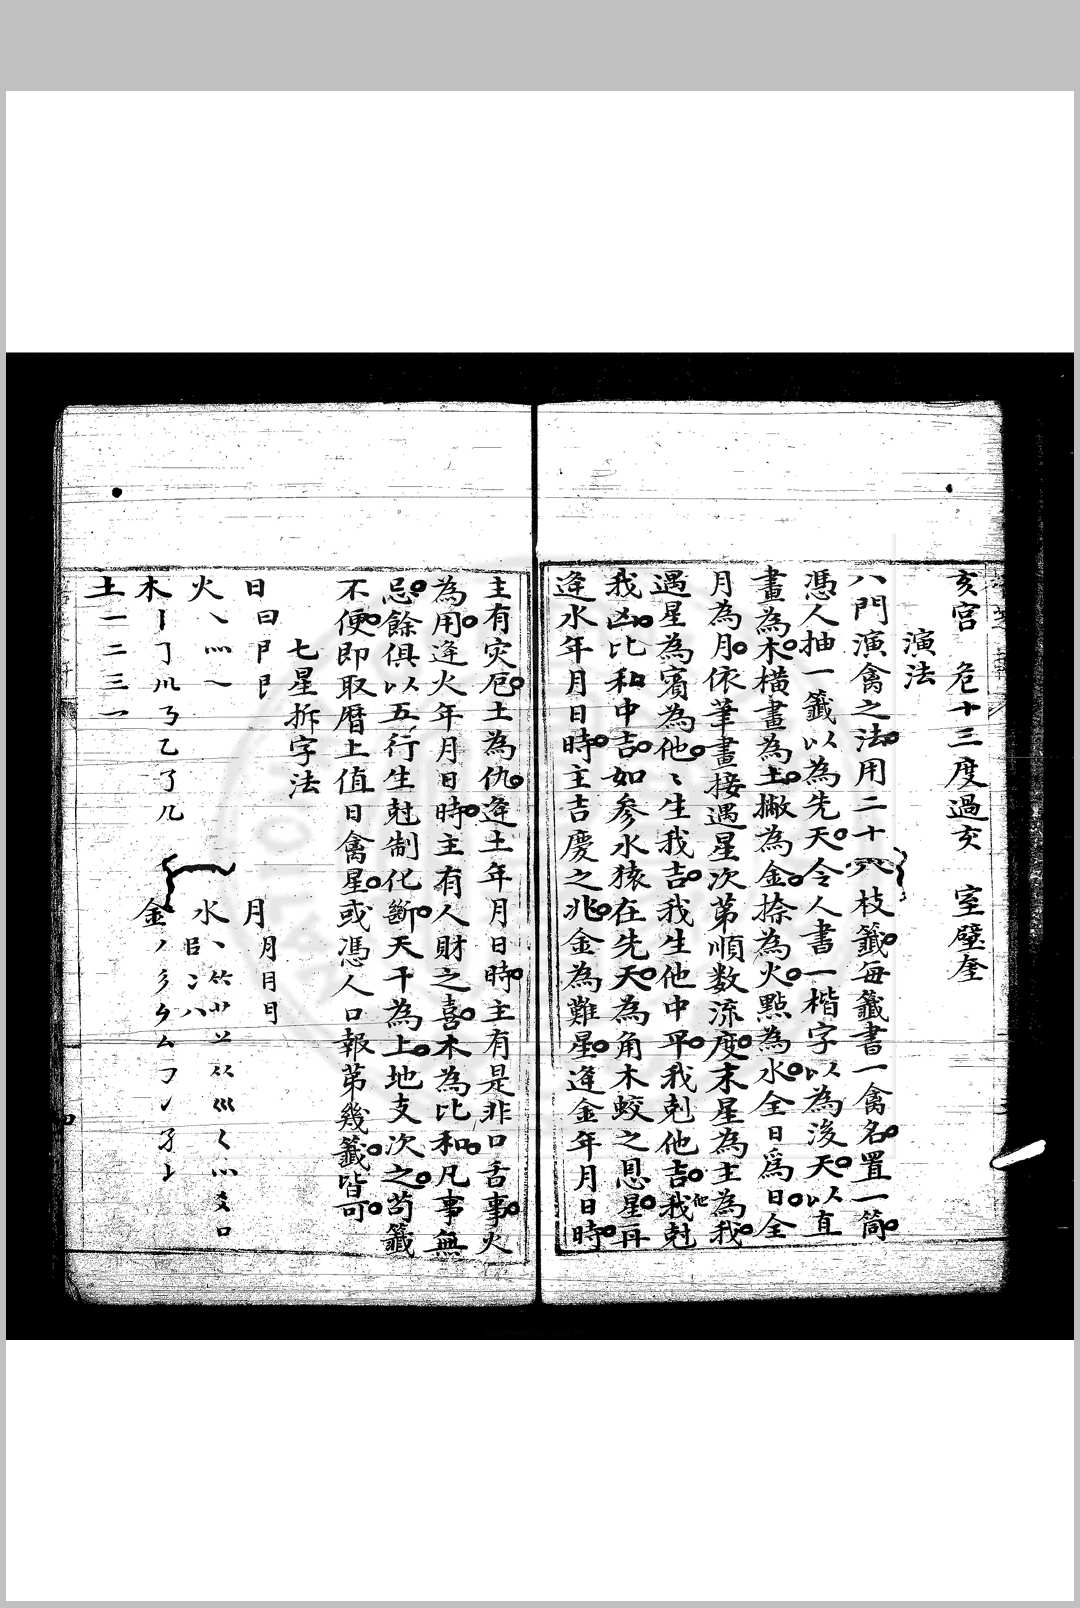 亥宮　危十三度過亥　室壁奎
演法
八門演禽之法用二十八枝籤每籤書一禽名置一筒
憑人抽一籤以為先天令人書一楷字以為後天以直
畫為木橫畫為土撇為金捺為火點為水全日為日全
月為月依筆畫接遇星次第順数流度末星為主為我
遇星為賓為他〻生我吉我生他中平我剋他吉我尅他
我凶比和中吉如參水猿在先天為角木蛟之恩星再
逢水年月日時主吉慶之兆金為難星逢金年月日時
主有灾厄土為仇逢土年月日時主有是非口舌事火
為用逢火年月日時主有人財之喜木為比和凡事無
忌餘俱以五行生尅制化斷天干為上地支次之苟籤
不便即取曆上值日禽星或憑人口報第幾籤皆可
七星拆字法
日　曰　月　月月日
火　水
木　金
土一二三